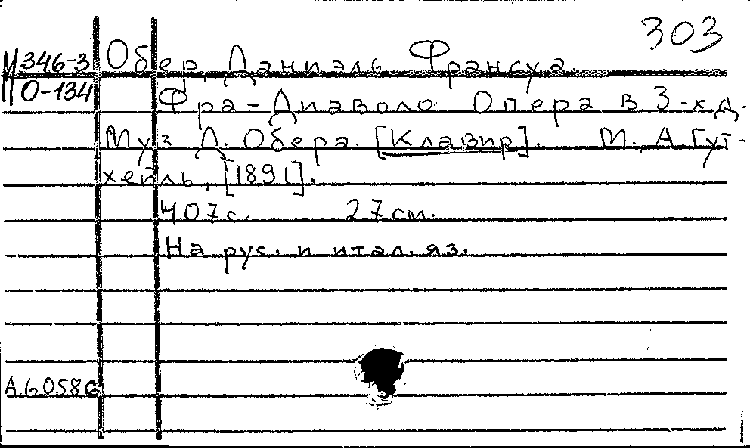 303
М 346-3 Обер, Даниэль Франсуа.
О-134 Фра-Диаволо. Опера в 3-х д.
Муз. Д. Обера. [Клавир]. М. А. Гут-
хейль, [1891].
407 с. 27 см.
На рус. и итал. яз.
А.60586